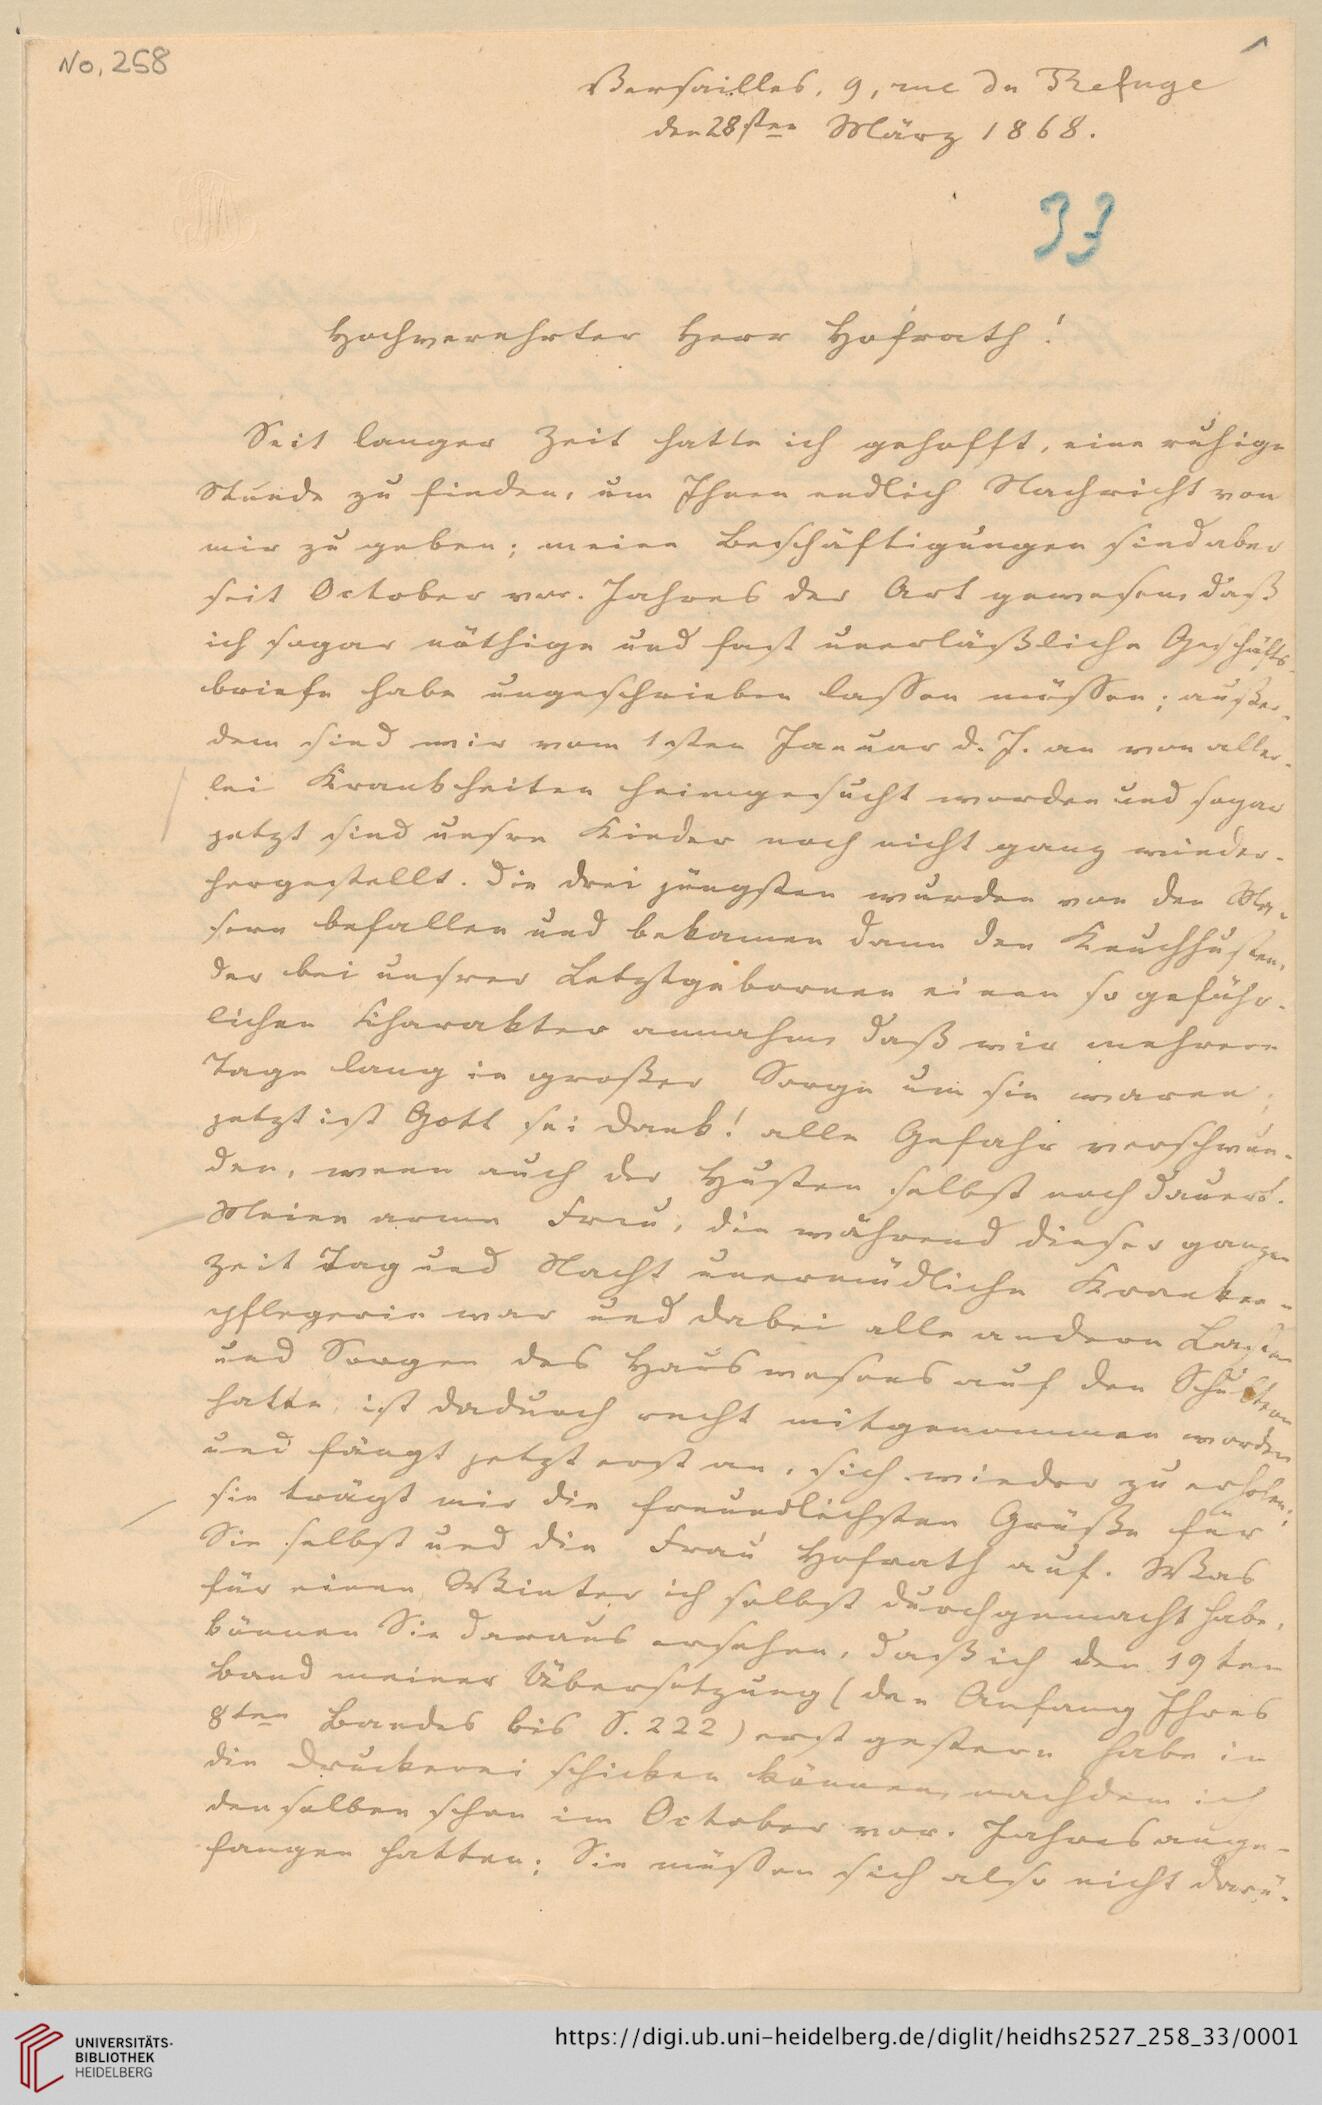 No. 258
1
Versailles, 9, rue du Refuge
den 28sten März 1868.
33
Hochverehrter Herr Hofrath!
Seit langer Zeit hatte ich gehofft, eine ruhige
Stunde zu finden, um Ihnen endlich Nachricht von
mir zu geben; meine Beschäftigungen sind aber
seit October vor. Jahres der Art gewesen, daß
ich sogar nöthige und fast unerläßliche Geschäfts-
briefe habe ungeschrieben lassen müssen; außer-
dem sind wir vom 1sten Januar d. J. an von aller-
lei Krankheiten heimgesucht worden und sogar
jetzt sind unsre Kinder noch nicht ganz wieder-
hergestellt. Die drei jüngsten wurden von den Ma-
sern befallen und bekamen dann den Keuchhusten,
der bei unsrer Letztgebornen einen so gefähr-
lichen Charakter annahm, daß wir mehrere
Tage lang in großer Sorge um sie waren;
jetzt ist Gott sei Dank! alle Gefahr verschwun-
den, wenn auch der Husten selbst noch dauert.
Meine arme Frau, die während dieser ganzen
Zeit Tag und Nacht unermüdliche Kranken-
pflegerin war und dabei alle andern Lasten
und Sorgen des Hauswesens auf den Schultern
hatte, ist dadurch recht mitgenommen worden
und fängt jetzt erst an, sich wieder zu erholen;
sie trägt mir die freundlichsten Grüße für
Sie selbst und die Frau Hofrath auf. Was
für einen Winter ich selbst durchgemacht habe,
können Sie daraus ersehen, daß ich den 19ten
Band meiner Übersetzung (den Anfang Ihres
8ten Bandes bis S. 222) erst gestern habe in
die Druckerei schicken können, nachdem ich
denselben schon im October vor. Jahres ange-
fangen hatten; Sie müssen sich also nicht darü-
UNIVERSITÄTS-
BIBLIOTHEK
HEIDELBERG
https://digi.ub.uni-heidelberg.de/diglit/heidhs2527_258_33/0001